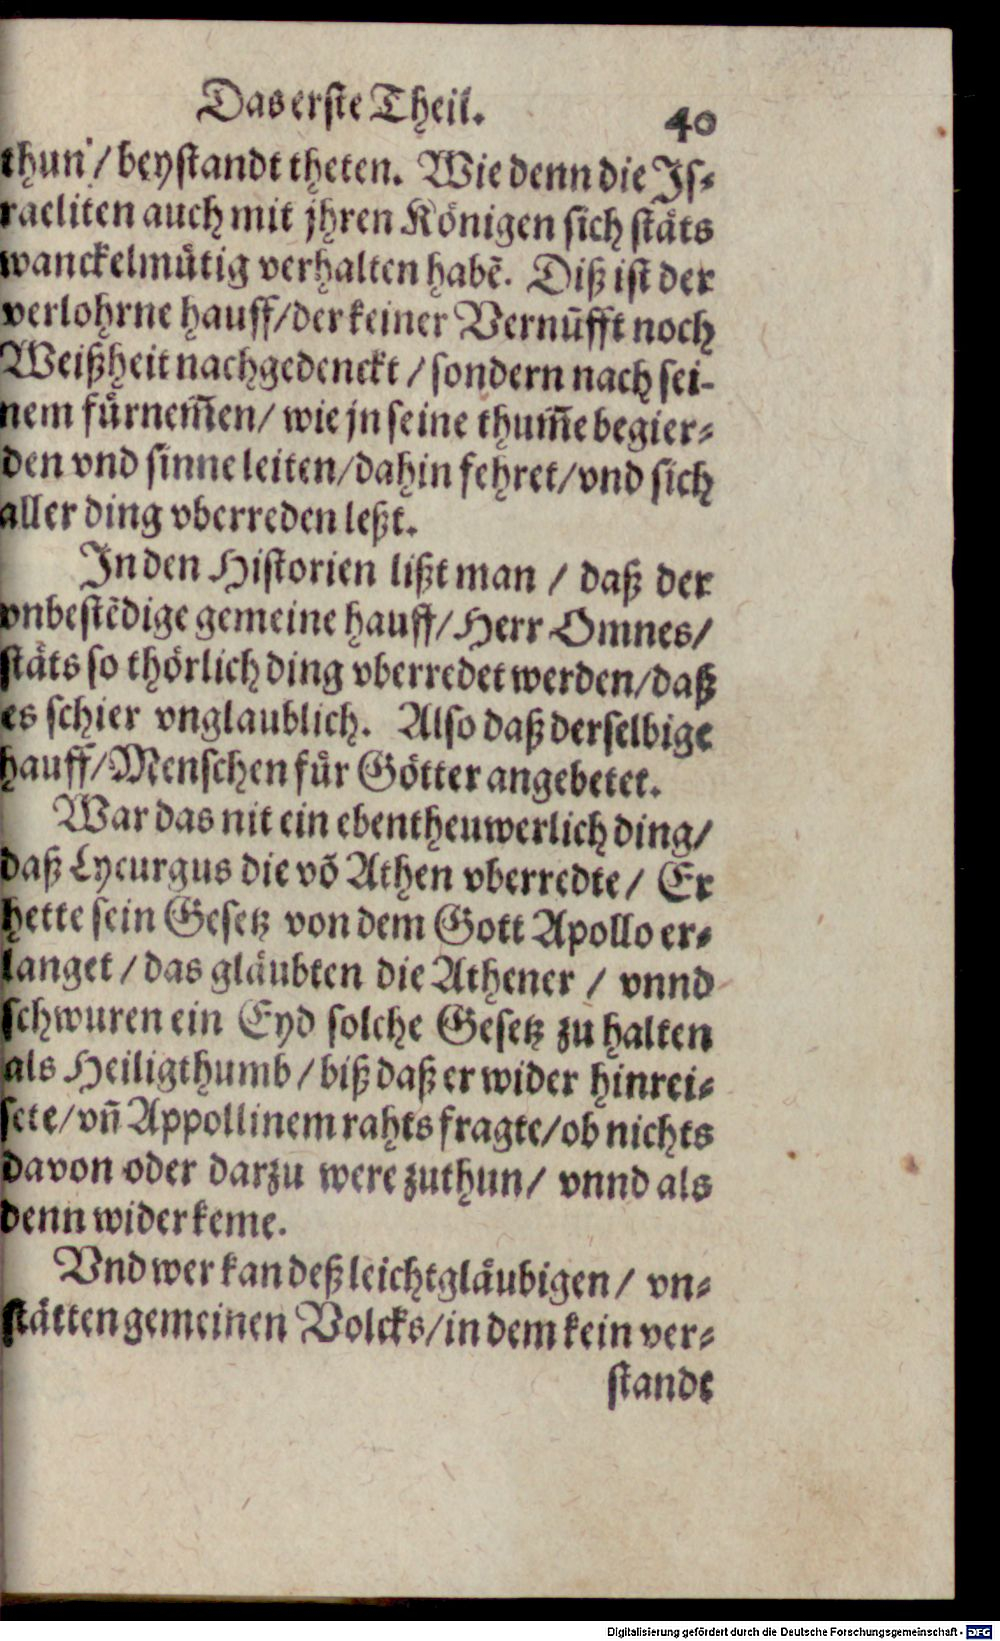 Das erste Theil. 40
thun / beystandt theten. Wie denn die Is-
raeliten auch mit jhren Königen sich stäts
wanckelmütig verhalten habẽ. Diß ist der
verlohrne hauff/der keiner Vernũfft noch
Weißheit nachgedenckt / sondern nach sei-
nem fürnem̃en/ wie jn seine thum̃e begier-
den vnd sinne leiten/dahin fehret/vnd sich
aller ding vberreden leßt.
In den Historien lißt man / daß der
vnbestẽdige gemeine hauff/Herr Omnes/
stäts so thörlich ding vberredet werden/daß
es schier vnglaublich. Also daß derselbige
hauff/Menschen für Götter angebetet.
War das nit ein ebentheuwerlich ding/
daß Lycurgus die võ Athen vberredte/ Er
hette sein Gesetz von dem Gott Apollo er-
langet / das gläubten die Athener / vnnd
schwuren ein Eyd solche Gesetz zu halten
als Heiligthumb / biß daß er wider hinrei-
sete/vñ Appollinem rahts fragte/ob nichts
davon oder darzu were zuthun/ vnnd als
denn wider keme.
Vnd wer kan deß leichtgläubigen/ vn-
stätten gemeinen Volcks/in dem kein ver-
standt
Digitalisierung gefördert durch die Deutsche Forschungsgemeinschaft - DFG